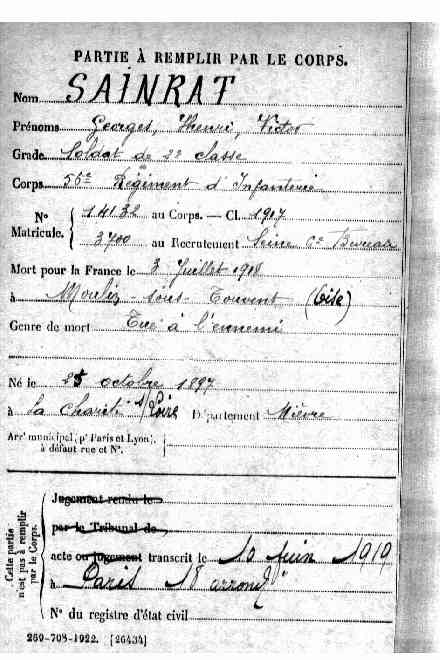 PARTIE À REMPLIR PAR LE CORPS.
Nom SAINRAT
Prénoms Georges, Henri, Victor
Grade Soldat de 2e classe
Corps 56e Régiment d'Infanterie
N° Matricule. 14132 au Corps. — Cl. 1917
3700 au Recrutement Seine 6e Bureau
Mort pour la France le 3 Juillet 1918
à Moulin-sous-Touvent (Oise)
Genre de mort Tué à l'ennemi
Né le 25 octobre 1897
à La Charité s/Loire Département Nièvre
Arrt municipal (pr Paris et Lyon),
à défaut rue et N°.
Cette partie
n'est pas à remplir
par le Corps.
Jugement rendu le
par le Tribunal de
acte ou jugement transcrit le 10 juin 1919
à Paris 18 arrondt
N° du registre d'état civil
269-708-1922. [26434]